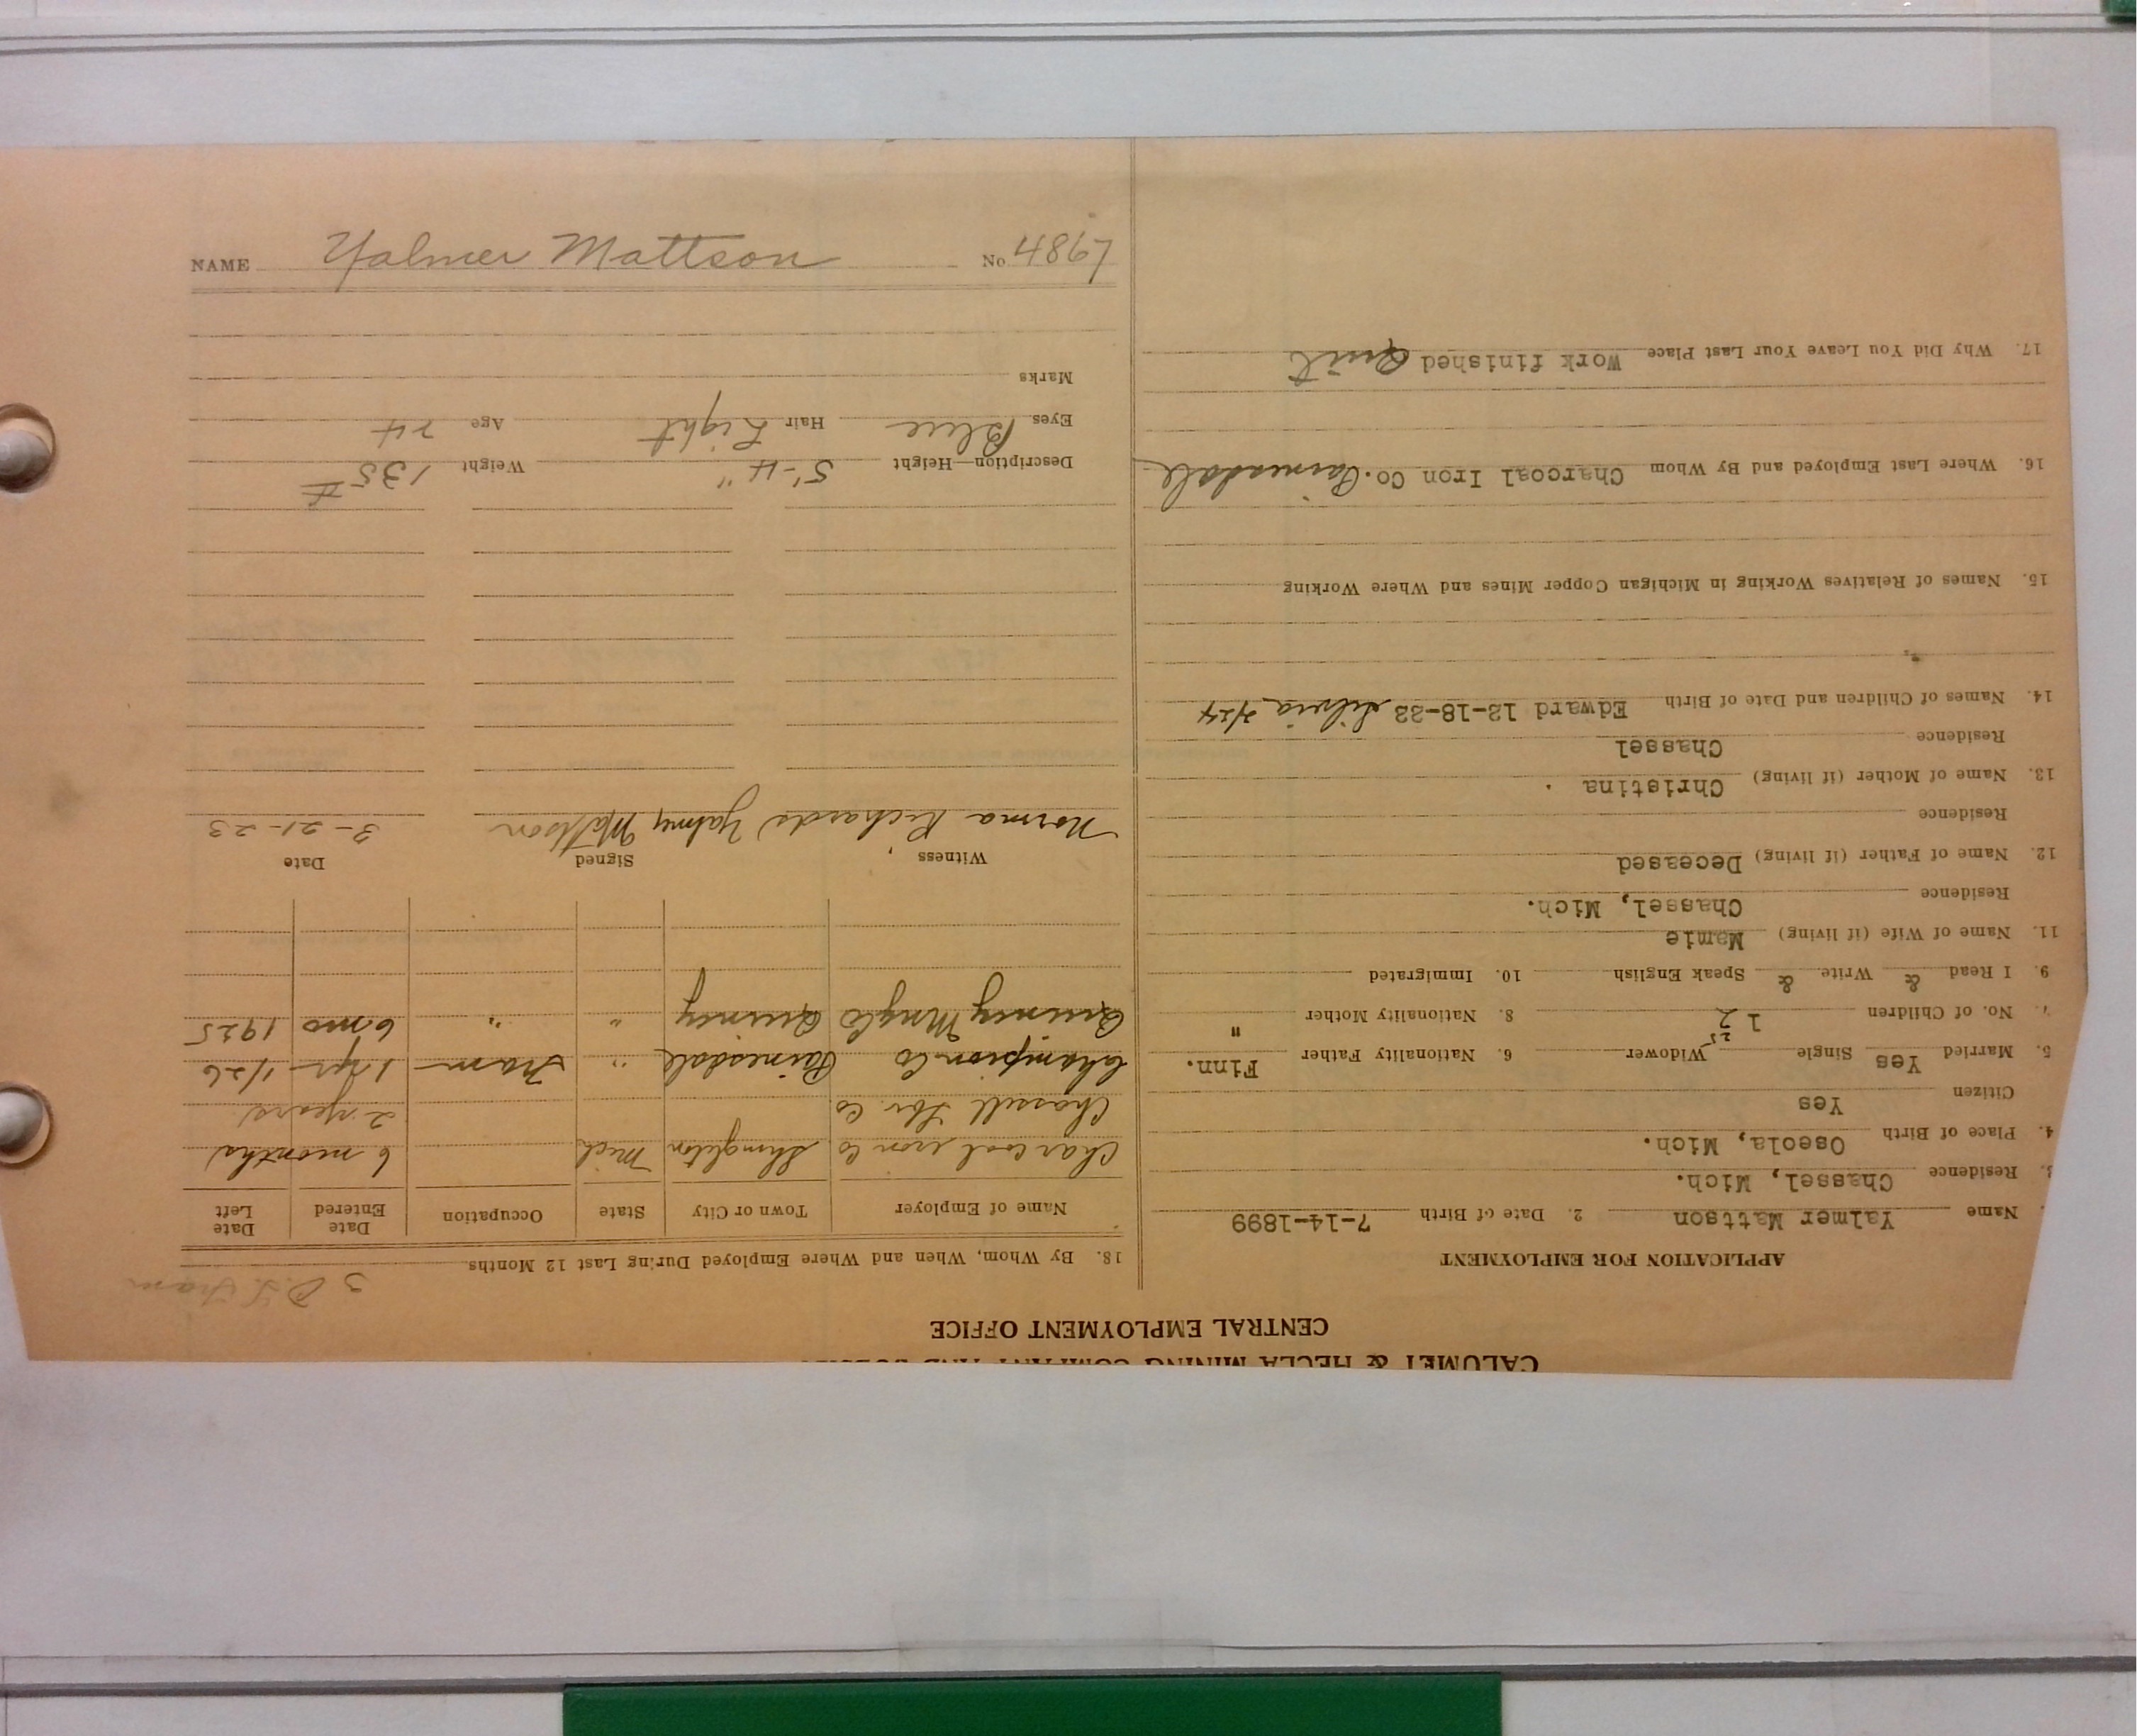 CALUMET & HECLA MINING COMPANY AND
CENTRAL EMPLOYMENT OFFICE
APPLICATION FOR EMPLOYMENT
Name Yalmer Mattson 2. Date of Birth 7-14-1899
Residence Chassel, Mich.
4. Place of Birth Oseola, Mich.
Citizen Yes
5. Married Yes Single Widower 6. Nationality Father Finn.
7. No. of Children 1 2 8. Nationality Mother "
9. I Read & Write & Speak English 10. Immigrated
11. Name of Wife (if living) Mamie
Residence Chassel, Mich.
12. Name of Father (if living) Deceased
Residence
13. Name of Mother (if living) Christina
Residence Chassel
14. Names of Children and Date of Birth Edward 12-18-22 Silvia 2/24
15. Names of Relatives Working in Michigan Copper Mines and Where Working
16. Where Last Employed and By Whom Charcoal Iron Co. Painesdale
17. Why Did You Leave Your Last Place Work finished Quit
3 Tram
18. By Whom, When and Where Employed During Last 12 Months
Name of Employer Town or City State Occupation Date Entered Date Left
Charcoal iron Co Shingleton Mich 6 months
Chassell Lbr Co 2 years
Champion Co Painesdale " Tram 1 yr 1/26
Quincy Mng Co Quincy " " 6 mo 1925
Witness Signed Date
Norma Richards Yalmer Mattson 3-21-23
Description—Height 5'-4" Weight 135#
Eyes Blue Hair Light Age 24
Marks
NAME Yalmer Mattson No 4867